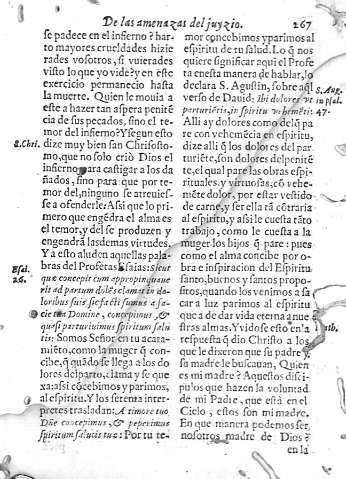 De las amenazas del juyzio. 267
se padece en el infierno? har-
to mayores crueldades hizie
rades vosotros, si vuierades
visto lo que yo vide? y en este
exercicio permanecio hasta
la muerte. Quien le mouia a
este a hazer tan aspera penitē
cia de sus pecados, sino el te-
mor del infierno? Y segun esto
S. Chri.
dize muy bien san Chrisosto-
mo, que no solo criò Dios el
infierno para castigar a los da
ñados, sino para que por te-
mor del, ninguno se atreuies-
se a ofenderle: Asi que lo pri-
mero que engēdra el alma es
el temor, y del se produzen y
engendrā las demas virtudes.
Y a esto aluden aquellas pala
Esai. 26.
bras del Profeta Esaias: Sicut
que concepit cum appropinquaue
rit ad partum dolēs clamat in do
loribus suis sic facti sumus a fa-
cie tua Domine, concepimus, &
quasi parturiuimus spiritum salu
tis: Somos Señor en tu acata-
miēto, como la muger q̄ conci-
be, q̄ quādo se llega a los dolo
res del parto, clama y se que
xa: asi cōcebimos y parimos,
al espiritu. Y los setenta inter-
pretes trasladan: A timore tuo
Dñe concepimus, & peperimus
spiritum salutis tuæ: Por tu te-
mor concebimos y parimos al
espiritu de tu salud. Lo q̄ nos
quiere significar aqui el Profe
ta en esta manera de hablar, lo
S. Aug. in Psal. 47.
declara S. Agustin, sobre aql̄
verso de Dauid: Ibi dolores vt
perturiētis, in spiritu vehemēti:
Alli ay dolores como del q̄ pa
re con vehemēcia en espiritu,
dize alli q̄ los dolores del par
turiēte, son dolores del penitē
te, el qual pare las obras espi-
rituales, y virtuosas, cō vehe-
mēte dolor, por estar vestido
de carne, y ser ella tā cōtraria
al espiritu, y asi le cuesta tāto
trabajo, como le cuesta a la
muger los hijos q̄ pare: pues
como el alma concibe por o-
bra e inspiracion del Espiritu
santo, buenos y santos propo-
sitos, quando los venimos a sa
car a luz parimos al espiritu
que a de dar vida eterna a nue
stras almas. Y vidose esto en la
respuesta q̄ dio Christo a los
que le dixeron que su padre y
su madre le buscauan, Quien
es mi madre? Aquestos disci-
pulos que hazen la voluntad
de mi Padre, que està en el
Cielo, estos son mi madre.
En que manera podemos ser
nosotros madre de Dios?
en la